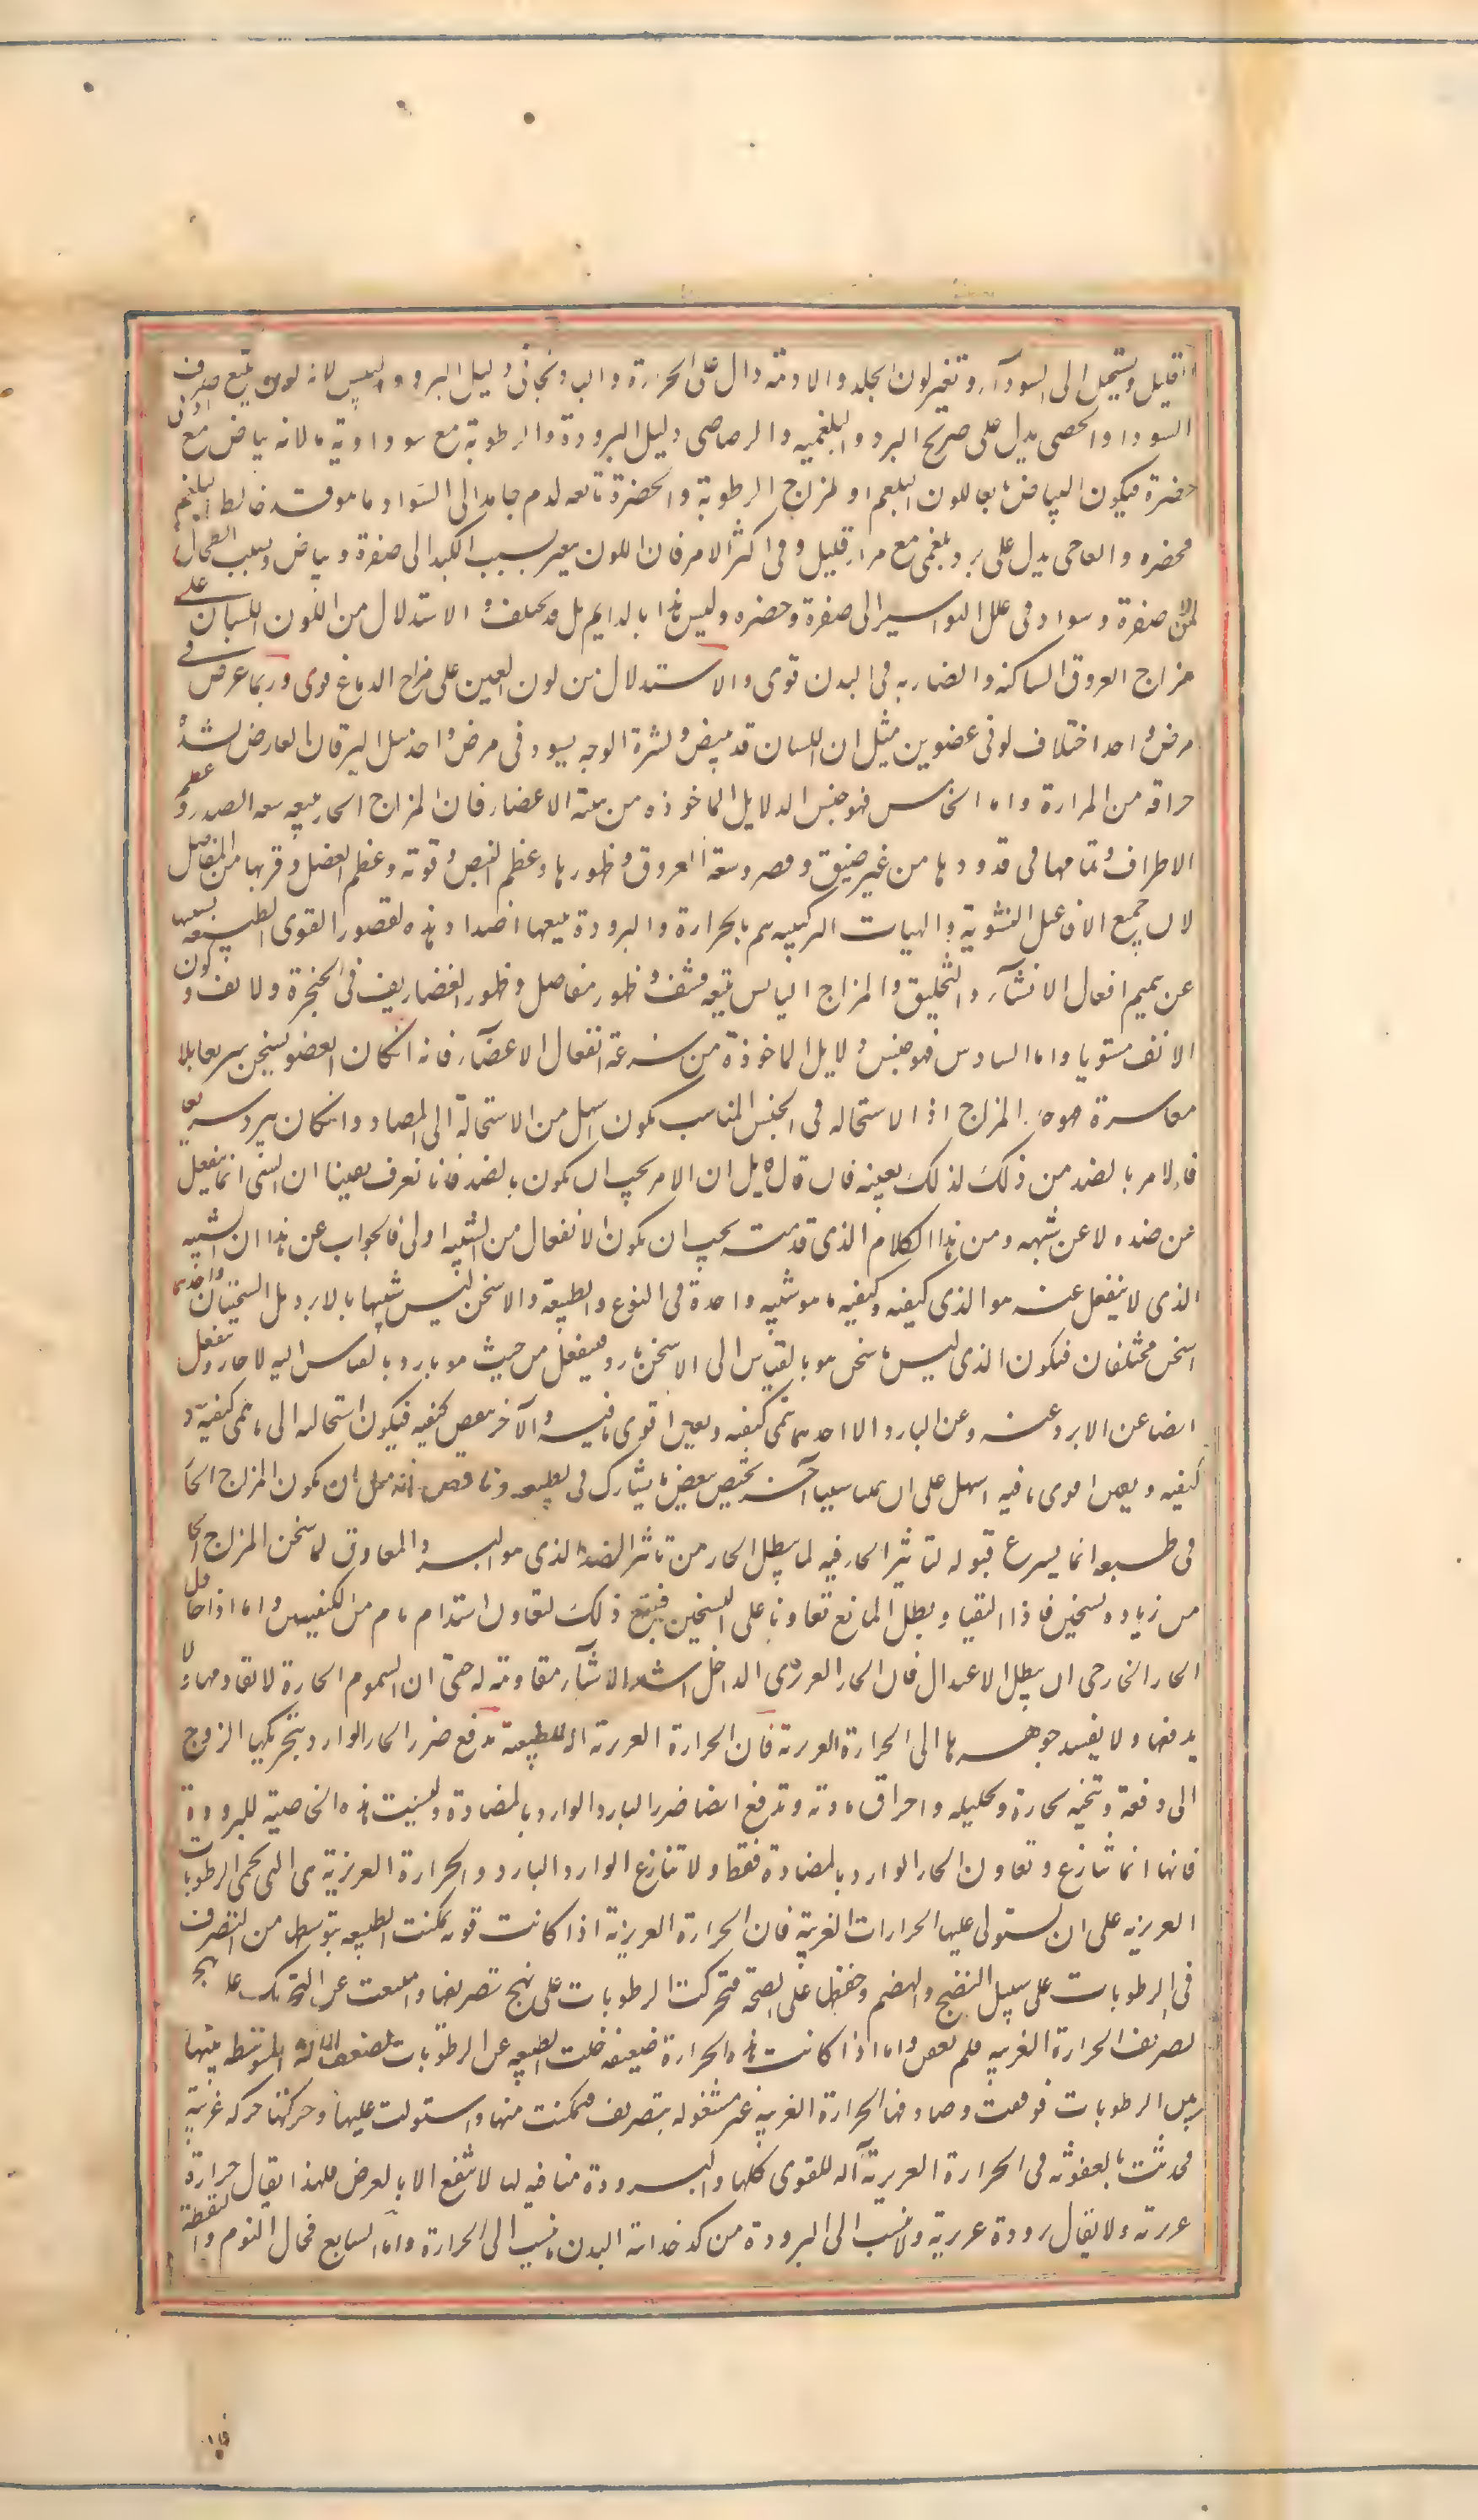 قليل ويستحيل الى السوداء وتغير لون الجلد والادمة دال على الحرارة والباذنجانى دليل البرد واليبس لانه لون يتبع صرف
السودا والجصى يدل على صريح البرد والبلغميه والرصاصى دليل البرودة والرطوبة مع سوداوية ما لانه بياض مع ادنى
خضرة فيكون البياض تابعا للون البلغم او لمزاج الرطوبة والخضرة تابعه لدم جامد الى السواد ما هو قد خالط البلغم
فخضره والعاجى يدل على برد بلغمى مع مرار قليل وفى اكثر الامر فان اللون يتغير بسبب الكبد الى صفرة وبياض وبسبب الطحال
الى صفرة وسواد وفى علل البواسير الى صفرة وخضره وليس هذا بالدايم بل قد يختلف والاستدلال من اللون اللسان على
مزاج العروق الساكنه والضاربه فى البدن قوى والاستدلال من لون العين على مزاج الدماغ قوى وربما عرض فى
مرض واحد اختلاف لونى عضوين مثل ان اللسان قد يبيض وبشرة الوجه يسود فى مرض واحد مثل اليرقان العارض لشدة
حراقه من المرارة واما الخامس فهو جنس الدلايل الماخوذه من هيئة الاعضاء فان المزاج الحار يتبعه سعه الصدر وعظم
الاطراف وتمامها فى قدودها من غير ضيق وقصر وسعة العروق وظهورها وعظم النبض وقوته وعظم العضل وقربها من المفاصل
لان جميع الافاعيل النشوية والهيات التركيبيه يتم بالحرارة والبرودة يتبعها اضداد هذه لقصور القوى الطبيعيه بسببها
عن تتميم افعال الانشاء والتخليق والمزاج اليابس يتبعه قشف وظهور مفاصل وظهور الغضاريف فى الحنجرة والانف وكون
الانف مستويا واما السادس فهو جنس دلايل الماخوذة من سرعة انفعال الاعضاء فانه ان كان العضو يسخن سريعا بلا
معاسرة فهو حار المزاج اذ الاستحاله فى الجنس المناسب يكون اسهل من الاستحالة الى المضاد وان كان يبرد سريعا
فالامر بالضد من ذلك لذلك بعينه فان قال قايل ان الامر يجب ان يكون بالضد فانا نعرف يقينا ان الشى انما ينفعل
من ضده لا عن شبهه ومن هذا الكلام الذى قدمت يجب ان يكون الانفعال من الشبيه اولى فالجواب عن هذا ان الشبيه
الذى لا ينفعل عنه هو الذى كيفيته وكيفيه ما هو شبيه واحدة فى النوع والطبيعة والاسخن ليس شبيها بالابرد بل السخينان واحدهما
اسخن مختلفان فيكون الذى ليس باسخن هو بالقياس الى الاسخن بارد فينفعل من حيث هو بارد بالقياس اليه لا حار وينفعل
ايضا عن الابرد عنه وعن البارد الا ان احدهما ينمى كيفيته ويعين اقوى ما فيه والآخر ينقص كيفيته فيكون استحالته الى ما ينمى كيفيته و
كيفيه ويعين اقوى ما فيه اسهل على ان ههنا سببا آخر يختص ببعض ما يشارك فى الطبيعه مثل ان يكون المزاج الحار
فى طبعه انما يسرع قبوله لتاثير الحار فيه لما يبطل الحار من تاثير الضد الذى هو البرد والمعاوق لما سخن المزاج الحار
من زياده تسخين فاذا التقيا وبطل المانع تعاونا على التسخين فيتبع ذلك التعاون اشتداد تام من الكيفيتين واما اذا حاول
الحار الخارجى ان يبطل الاعتدال فان الحار الغريزى الداخل اشد الاشياء مقاومة له حتى ان السموم الحارة لا يقاومها ولا
يدفعها ولا يفسد جوهرها الا الحرارة الغريزية فان الحرارة الغريزية الة للطبيعة تدفع ضرر الحار الوارد بتحريكها الروح
الى دفعه وتنحيه بخاره وتحليله واحراق مادته وتدفع ايضا ضرر البارد الوارد بالمضادة وليست هذه الخاصية للبرودة
فانها انما تنازع وتعاون الحار الوارد بالمضادة فقط ولا تنازع الوارد البارد والحرارة الغريزية هى التى تحمى الرطوبات
الغريزيه على ان تستولى عليها الحرارات الغريبه فان الحرارة الغريزية اذا كانت قويه تمكنت الطبيعه بتوسطها من التصرف
فى الرطوبات على سبيل النضج والهضم وحفظها على الصحة فتحركت الرطوبات على نهج تصريفها وامتنعت عن التحريك على نهج
تصريف الحرارة الغريبه فلم يعفن واما اذا كانت هذه الحرارة ضعيفه خلت الطبيعه عن الرطوبات لضعف الالة المتوسطه بينها
وبين الرطوبات فوقفت وصادفها الحرارة الغريبه غير مشغوله بتصريف فتمكنت منها واستولت عليها وحركتها حركه غريبه
فحدثت العفونه فى الحرارة الغريزية آله للقوى كلها والبرودة منافيه لها لا تنفع الا بالعرض فلهذا يقال حرارة
غريزية ولا يقال برودة غريزية ولا ينسب الى البرودة من كدخدائية البدن ما ينسب الى الحرارة واما السابع فحال النوم واليقظة